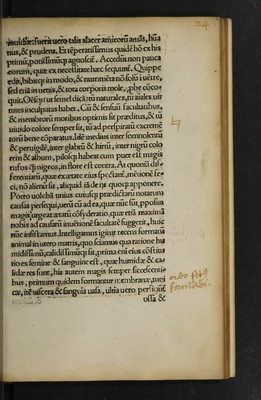 24
inculdiæ: fuerit uero talis alacer amicorũ amãs, hũa
nus, & prudens. Et tẽperatissimus quidẽ hõ ex his
primũ, potissimũq; agnoscit. Accedũt non pauca
eorum, quæ ex necessitate hæc sequunt̃. Quippe
edit, bibitq; in modo, & nutrimẽta nõ solũ i uẽtre,
sed etiã in uenis, & tota corporis mole, ꝓbe cõco-
quit. Oẽsq; ut semel dicã tũ naturales, tũ aiales uir
tutes inculpatas habet. Cũ & sensuũ facultatibus,
& membrorũ motibus optimis sit præditus, & tũ
uiuido colore semper sit, tũ ad perspiratũ excremẽ
torũ bene cõparatus. Idẽ medius inter somnolentũ
& peruigilẽ, inter glabrũ & hirtũ, inter nigrũ colo
rem & album, pilosq; habeat cum puer est magis
rufos q̃ nigros, in flore est contra. At quoniã dif-
ferentiarũ, quæ ex ætate eius spectant̃, mẽtionẽ fe-
ci, nõ alienũ sit, aliquid iã de ijs quoq; apponere.
Porro uolebã unius cuiusq; prædictarũ notarum
causas persequi, uerũ cũ ad ea, quæ nũc sũt, ꝓposita
magis urgeat ætatũ cõsyderatio, quæ etiã maximã
nobis ad causarũ inuẽtionẽ facultatẽ suggerit, huic
nũc insistamus. Intelligamus igitur recens formatũ
animal in utero matris, quo sciamus qua ratione hu
midissimũ, calidissimũq; sit, prima eni eius cõstitu
tio ex semine & sanguine est, quæ humidæ & ca-
lidæ res sunt, his autem magis semper siccescenti-
bus, primum quidem formantur mẽbranæ, tuni
cæ, itẽ uiscera & sanguis uasa, ultia uero perficiunt̃
ossa &